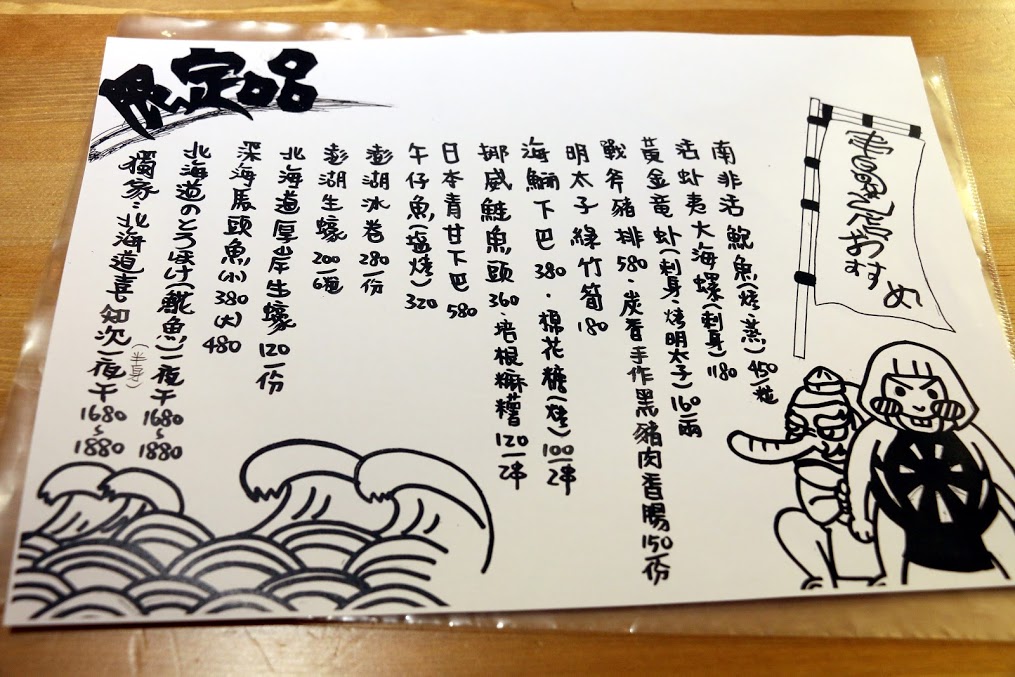 限定品
おすすめ
南非活鮑魚(烤.蒸)450/粒
活虾夷大海螺(刺身)180
黃金竜虾(刺身.烤明太子)160/兩
戰斧豬排580.炭香手作黑豬肉香腸150/份
明太子綠竹筍180
海鱺下巴380.棉花糖(烤)100/2串
挪威鮭魚頭360.培根麻糬120/2串
日本青甘下巴580
午仔魚(塩烤)320
澎湖冰卷280/份
澎湖生蠔200/6顆
北海道厚岸生蠔120/份
深海馬頭魚(小)380(大)480
北海道のとろほけ(魚)一夜干1680~1880
獨家:北海道喜知次一夜干(半身)1680~1880